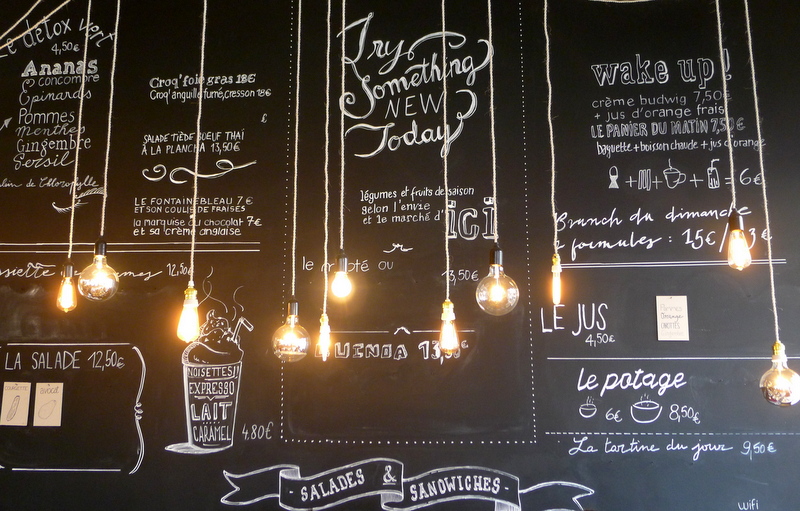 Le détox vert
4,50€
Ananas
Concombre
Épinards
Pommes
Menthe
Gingembre
Persil
Croq' foie gras 18€
Croq' anguille fumé, cresson 18€
£
SALADE TIÈDE BOEUF THAÏ
À LA PLANCHA 13,50€
LE FONTAINEBLEAU 7€
ET SON COULIS DE FRAISES
la marquise au chocolat 7€
et sa crème anglaise
LA SALADE 12,50€
NOISETTES
EXPRESSO
LAIT
CARAMEL
4.80€
Try
Something
NEW
Today
légumes et fruits de saison
selon l'envie
et le marché d'
ici
13,50€
QUINOA
wake up!
crème budwig 7,50€
+ jus d'orange frais
LE PANIER DU MATIN 7,50€
baguette + boisson chaude + jus d'orange
+ + + = 6€
Brunch du dimanche
2 formules : 15€/
LE JUS
4,50€
Le potage
6€ 8,50€
La tartine du jour 9,50€
- SALADES & SANDWICHES -
wifi